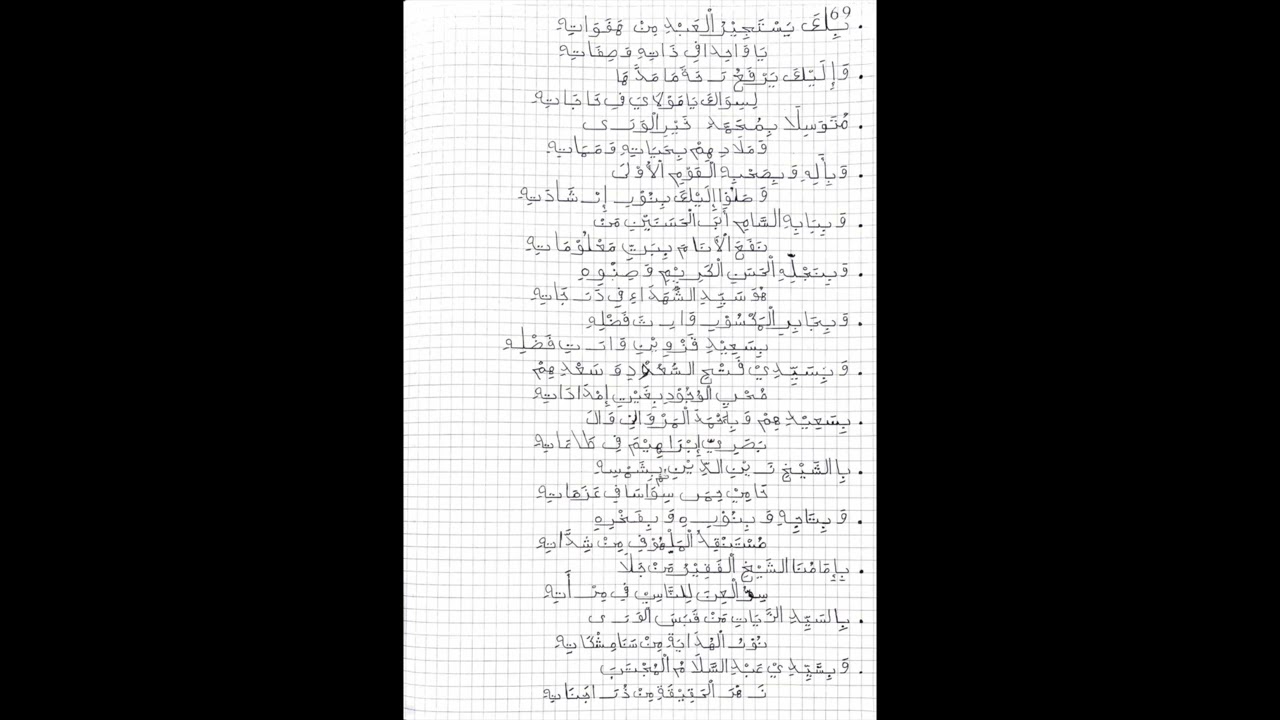 69
بِكَ يَسْتَجِيْرُ الْعَبْدِ مِنْ هَفَوَاتِهِ
يَا وَاحِدًا فِي ذَاتِهِ وَصِفَاتِهِ
وَإِلَيْكَ يَرْفَعُ رَاحَةً مَا مَدَّهَا
لِسِوَاكَ يَا مَوْلَايَ فِي حَاجَاتِهِ
مُتَوَسِلًا بِمُحَمَّد خَيْرِ الْوَرَى
وَمَلَاذِهِمْ بِحَيَاتِهِ وَمَمَاتِهِ
وَبِأَلِهِ وَبِصَحْبِهِ الْقَوْمِ الْأُوْلَى
وَصَلُوْا إِلَيْكَ بِنُوْرِ إِرْشَادَتِهِ
وَبِبَابِهِ السَّامِ أَبَى الْحَسَنَيْنِ مَنْ
نَفَعَ الْأَنَام بِبَرِّ مَعْلُوْمَاتِهِ
وَبِنَجْلِهِ الْحَسَنِ الْكَرِيْمِ وَصِنْوِهِ
هُوَ سَيِّدِ الشُّهَدَاءِ فِي دَرَجَاتِهِ
وَبِجَابِرِ الْمَكْسُوْرِ وَارِثَ فَضْلِهِ
بِسَعِيْدِ قَزْوِيْنِ وَارِثِ فَضْلِهِ
وَبِسَيِّدِيْ فَتْحِ السُّعُوْدِ وَسَعْدِهِمْ
مُحْيِ الْوُجُوْدِ بِغَيْثِ إِمْدَادَاتِهِ
بِسَعِيْدِهِمْ وَبِأَحْمَدَ الْمَرْوَانِ وَالَ
بَصَرِيِّ إِبْرَاهِيْمَ فِي طَاعَاتِهِ
بِالشَّيْخِ زَيْنِ الدِّيْنِ ثُمَّ بِشَمْسِهِ
حَامِيْ حِمَى سِوَاسَا فِي عَزَمَاتِهِ
وَبِتَاجِهِ وَبِنُوْرِهِ وَبِفَخْرِهِ
مُسْتَنْقِذِ الْمَلْهُوْفِ مِنْ شِدَّاتِهِ
بِإِمَامُنَا الشَّيْخِ الْفَقِيْرُ مَنْ جَلَا
لِلنَّاسِ فِي مِرْأَتِهِ
بِالسَيِّدِ الزَّيَّاتِ مَنْ قَبَسَ الْوَرَى
نُوْرُ الْهُدَايَةِ مِنْ سَنَا مِشْكَاتِهِ
وَبِسَّيِّدِيْ عَبْدِ السَّلَامُ الْمُجْتَبَى
زَهْرَ الْحَقِيْقَةِ مِنْ ذُرَا جَنَّاتِهِ